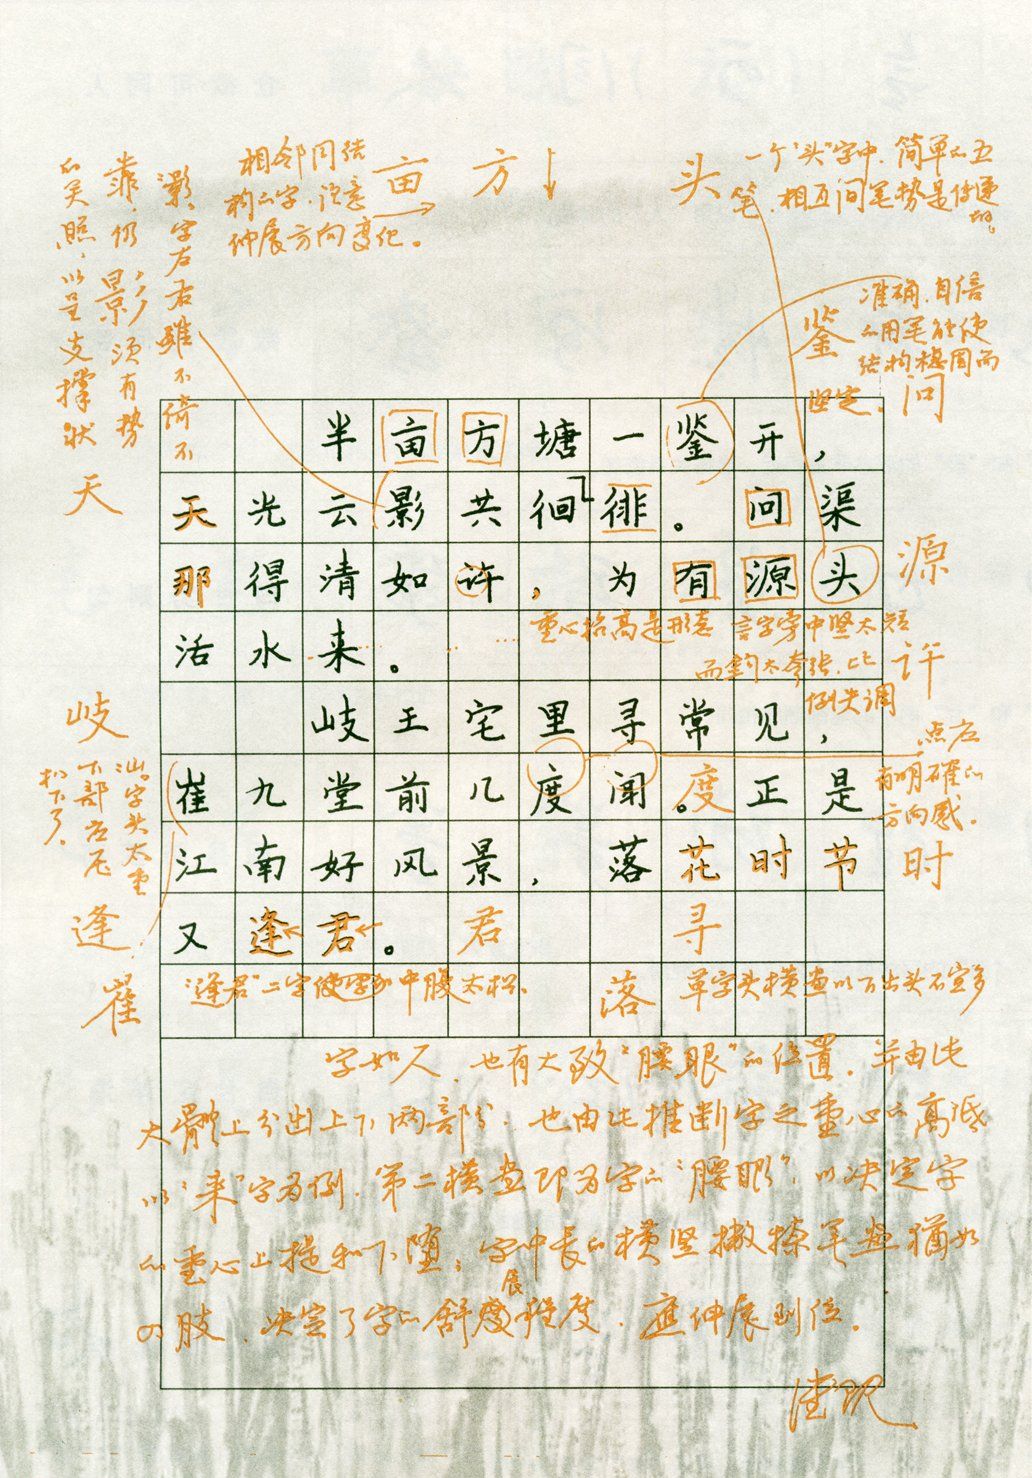 相邻同结
构二字，注意
伸展方向变化。
亩 方
头
一个“头”字中，简单的五
笔，相互间笔势是传递
的。
“影”字左右虽不倚不
靠，仍须有势
的关照，以呈支撑状
影
天
准确、自信
的用笔能使
结构稳固而
坚定。
鉴
问
半亩方塘一鉴开，
天光云影共徊徘。问渠
那得清如许，为有源头
源
重心抬高是形态
言字旁中竖太短
而钩太夸张，比
例失调
许
活水来。
岐王宅里寻常见，
岐
点应
有明确的
方向感。
崔九堂前几 度闻。度正是
山字头太重
下部应尾
松下了。
江南好风景，落花时节
时
又逢君。君 寻
逢
崔
“逢君”二字使字的中腹太松。
落
单字头横画以下出头不宜多
字如人，也有大致“腰眼”的位置，并由此
大体上分出上下两部分，也由此推断字之重心的高低
以“来”字为例，第二横画即为字的“腰眼”，以决定字
的重心上提和下堕；字伸长的横竖撇捺笔画犹如
四肢，决定了字的舒展程度，应伸展到位。